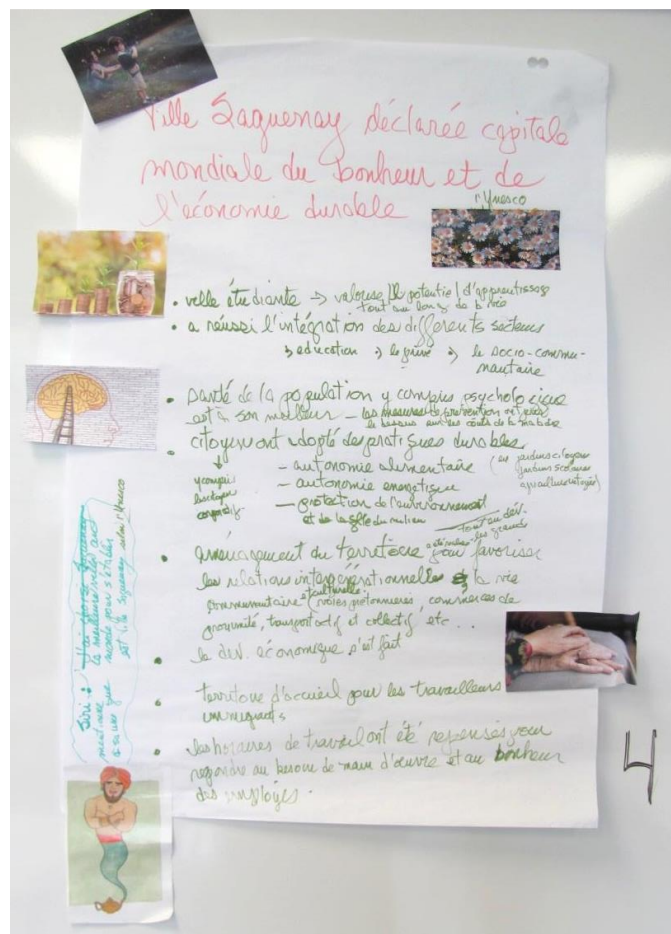 Ville Saguenay déclarée capitale
mondiale du bonheur et de
l'économie durable
Unesco
• ville étudiante → valorise le potentiel d'apprentissage
tout au long de la vie
• a réussi l'intégration des différents secteurs
→ éducation → le privé → le socio-commu-
nautaire
• Santé de la population y compris psychologique
est à son meilleur - les mesures de prévention ont
le besoin sur les coûts de la maladie
• citoyens ont adopté des pratiques durables
↓
y compris
- autonomie alimentaire
(ex jardins citoyens
jardins scolaires
- autonomie énergétique
- protection de l'environnement
et de la
tout au dév.
les grands
• aménagement du territoire pour favoriser
les relations intergénérationnelles & la vie
culturelle
communautaire (voies piétonnières, commerces de
proximité, transport actif et collectif, etc...
• le dév. économique s'est fait
• territoire d'accueil pour les travailleurs
immigrants
• les horaires de travail ont été repensés pour
répondre au besoin de main d'œuvre et au bonheur
des employés.
Siri :
la meilleure
monde pour s'établir
est Ville Saguenay selon l'Unesco
4